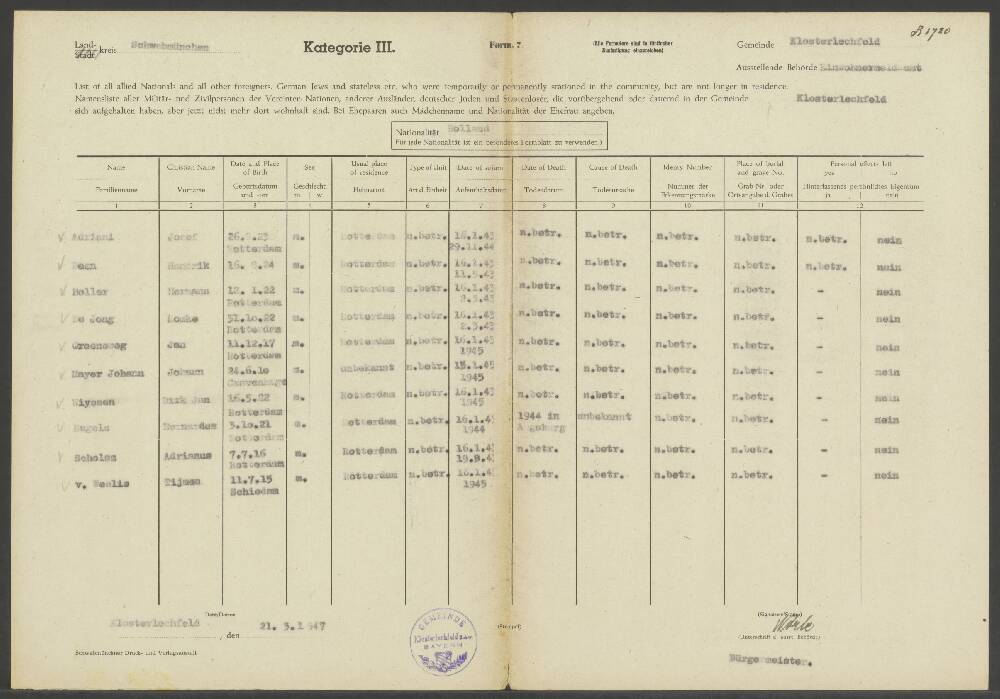 R 1720
Land-
Stadt kreis Schwabmünchen
Kategorie III.
Form. 7
(Alle Formulare sind in fünffacher
Ausfertigung einzureichen)
Gemeinde Klosterlechfeld
Ausstellende Behörde Einwohnermeldeamt
List of all allied Nationals and all other foreigners, German Jews and stateless etc. who were temporarily or permanently stationed in the community, but are not longer in residence.
Namensliste aller Militär- und Zivilpersonen der Vereinten Nationen, anderer Ausländer, deutscher Juden und Staatenloser, die vorübergehend oder dauernd in der Gemeinde Klosterlechfeld
sich aufgehalten haben, aber jetzt nicht mehr dort wohnhaft sind. Bei Ehepaaren auch Mädchenname und Nationalität der Ehefrau angeben.
Nationalität Holland
Für jede Nationalität ist ein besonderes Formblatt zu verwenden.)
Name Christian Name Date and Place of Birth Sex Usual place of residence Type of unit Date of sojurn Date of Death Cause of Death Identy Number Place of burial and grave No. Personal effects left yes no
Familienname Vorname Geburtsdatum und -ort Geschlecht m w Heimatort Art d. Einheit Aufenthaltsdauer Todesdatum Todesursache Nummer der Erkennungsmarke Grab-Nr. oder Ortsangabe d. Grabes Hinterlassenes persönliches Eigentum ja nein
1 2 3 4 5 6 7 8 9 10 11 12
Adriani Josef 26. .23 m. Rotterdam n.betr. 16.1.43 n.betr. n.betr. n.betr. n.betr. n.betr. nein
Rotterdam 29.11.44
Hendrik 16. .24 m. Rotterdam n.betr. 16.1.43 n.betr. n.betr. n.betr. n.betr. n.betr. nein
Rotterdam 11.5.43
Boller Hermann 12. 1.22 m. Rotterdam n.betr. 16.1.43 n.betr. n.betr. n.betr. n.betr. - nein
Rotterdam 2.5.43
De Jong 31.10.22 m. Rotterdam n.betr. 16.1.43 n.betr. n.betr. n.betr. n.betr. - nein
Rotterdam 2.5.43
Groeneweg Jan 11.12.17 m. Rotterdam n.betr. 16.1.43 n.betr. n.betr. n.betr. n.betr. - nein
Rotterdam 1945
Mayer Johann 24.6.10 m. unbekannt n.betr. 15.1.45 n.betr. n.betr. n.betr. n.betr. - nein
1945
Wiysman Dirk Jan 16.5.22 m. Rotterdam n.betr. 16.1.43 n.betr. n.betr. n.betr. n.betr. - nein
Rotterdam 1945
Engels Bernardus 3.10.21 m. Rotterdam n.betr. 16.1.43 1944 in unbekannt n.betr. n.betr. - nein
Rotterdam 1944 Augsburg
Scholes Adrianus 7.7.16 m. Rotterdam n.betr. 16.1.43 n.betr. n.betr. n.betr. n.betr. - nein
Rotterdam 19.9.4
v. Weelis Tijmen 11.7.15 m. Rotterdam n.betr. 16.1.4 n.betr. n.betr. n.betr. n.betr. - nein
Schiedam 1945
Date/Datum
Klosterlechfeld, den 21. 3.1 947
GEMEINDE
Klosterlechfeld
BAYERN
(Stempel)
(Signature/Stamp)
(Unterschrift d. ausst. Behörde)
Bürgermeister.
Schwabmünchner Druck- und Verlagsanstalt